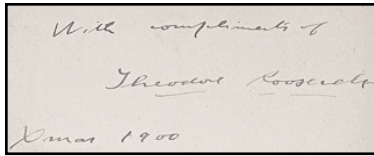 With compliments of
Theodore Roosevelt
Xmas 1900